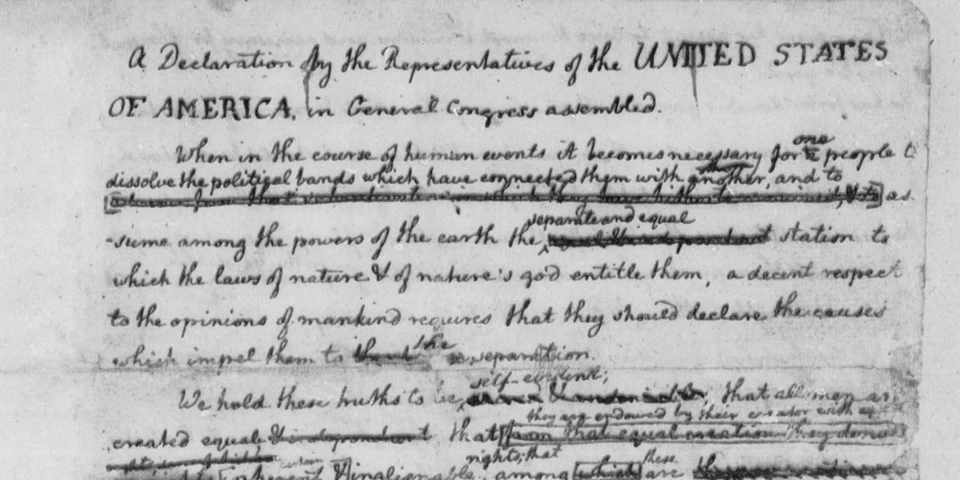 A Declaration by the Representatives of the UNITED STATES
OF AMERICA, in General Congress assembled.
When in the course of human events it becomes necessary for one people t
dissolve the political bands which have connected them with another, and to
as
-sume among the powers of the earth the separate and equal station to
which the laws of nature & of nature's god entitle them, a decent respect
to the opinions of mankind requires that they should declare the causes
which impel them to the separation.
We hold these truths to be self-evident; that all men ar
they are endowed by their creator with
created equal & independent that from that equal creation they
rights; that these
inherent & inalienable, among which are